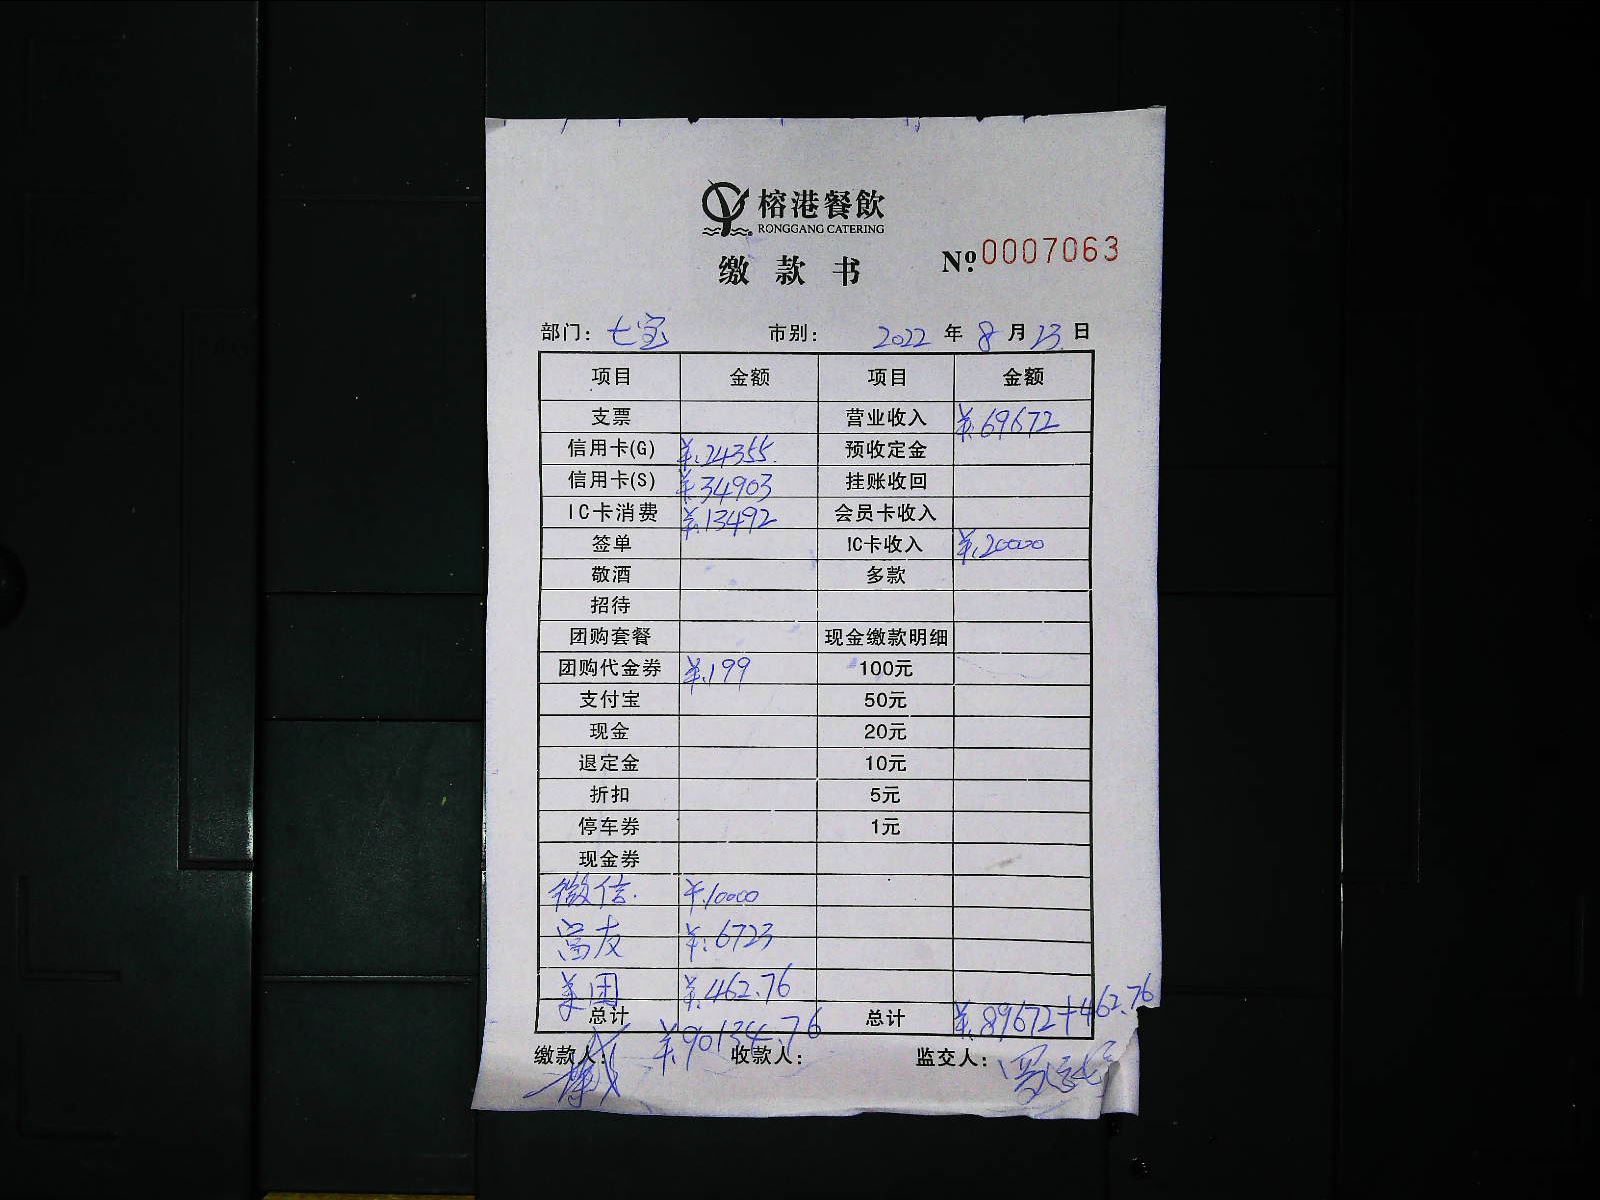 榕港餐飲
RONGGANG CATERING
缴款书 № 0007063
部门: 七宝 市别: 2022年8月23日
项目 金额 项目 金额
支票 营业收入 ¥.69672
信用卡(G) ¥.24355 预收定金
信用卡(S) ¥34903 挂账收回
IC卡消费 ¥.13492 会员卡收入
签单 IC卡收入 ¥.20000
敬酒 多款
招待
团购套餐 现金缴款明细
团购代金券 ¥.199 100元
支付宝 50元
现金 20元
退定金 10元
折扣 5元
停车券 1元
现金券
微信. ¥.10000
富友 ¥:6723
美团 ¥.462.76
总计 ¥.90134.76 总计 ¥.89672+462.76
缴款人: 收款人: 监交人: